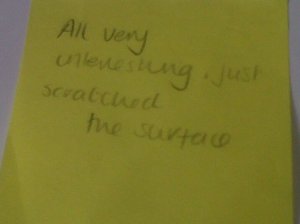 All very
interesting, just
scratched
the surface